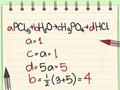 aPCl₅+bH₂O→cH₃PO₄+dHCl
a=1
c=a=1
d=5a=5
b=½(3+5)=4